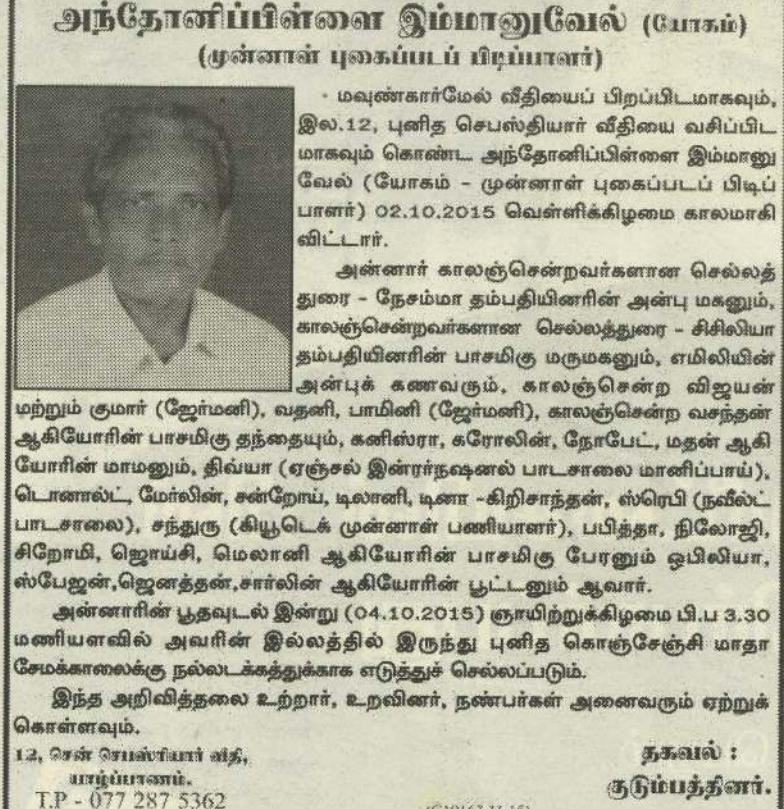 அந்தோனிப்பிள்ளை இம்மானுவேல் (யோகம்)
(முன்னாள் புகைப்படப் பிடிப்பாளர்)
மவுண்கார்மேல் வீதியைப் பிறப்பிடமாகவும்,
இல.12, புனித செபஸ்தியார் வீதியை வசிப்பிட
மாகவும் கொண்ட அந்தோனிப்பிள்ளை இம்மானு
வேல் (யோகம் - முன்னாள் புகைப்படப் பிடிப்
பாளர்) 02.10.2015 வெள்ளிக்கிழமை காலமாகி
விட்டார்.
அன்னார் காலஞ்சென்றவர்களான செல்லத்
துரை - நேசம்மா தம்பதியினரின் அன்பு மகனும்,
காலஞ்சென்றவர்களான செல்லத்துரை - சிசிலியா
தம்பதியினரின் பாசமிகு மருமகனும், எமிலியின்
அன்புக் கணவரும், காலஞ்சென்ற விஜயன்
மற்றும் குமார் (ஜேர்மனி), வதனி, பாமினி (ஜேர்மனி), காலஞ்சென்ற வசந்தன்
ஆகியோரின் பாசமிகு தந்தையும், கனிஸ்ரா, கரோலின், நோபேட், மதன் ஆகி
யோரின் மாமனும், திவ்யா (ஏஞ்சல் இன்ரர்நஷனல் பாடசாலை மானிப்பாய்),
டொனால்ட், மேர்லின், சன்றோய், டிலானி, டினா -கிறிசாந்தன், ஸ்ரெபி (நவீல்ட்
பாடசாலை), சந்துரு (கியூடெக் முன்னாள் பணியாளர்), பபித்தா, நிலோஜி,
சிறோமி, ஜொய்சி, மெலானி ஆகியோரின் பாசமிகு பேரனும் ஒபிலியா,
ஸ்பேஜன்,ஜெனத்தன்,சார்லின் ஆகியோரின் பூட்டனும் ஆவார்.
அன்னாரின் பூதவுடல் இன்று (04.10.2015) ஞாயிற்றுக்கிழமை பி.ப 3.30
மணியளவில் அவரின் இல்லத்தில் இருந்து புனித கொஞ்சேஞ்சி மாதா
சேமக்காலைக்கு நல்லடக்கத்துக்காக எடுத்துச் செல்லப்படும்.
இந்த அறிவித்தலை உற்றார், உறவினர், நண்பர்கள் அனைவரும் ஏற்றுக்
கொள்ளவும்.
12, சென் செபஸ்ரியார் வீதி,
யாழ்ப்பாணம்.
T.P - 077 287 5362
தகவல் :
குடும்பத்தினர்.